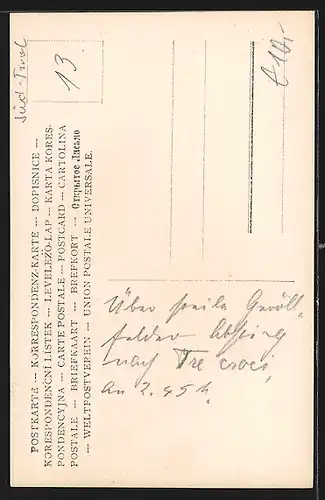 Süd-Tirol
13
€10,-
POSTKARTE --- KORRESPONDENZ-KARTE --- DOPISNICE ---
KORESPONDENČNÍ LÍSTEK --- LEVELEZŐ-LAP --- KARTA KORES-
PONDENCYJNA --- CARTE POSTALE --- POSTCARD --- CARTOLINA
POSTALE --- BRIEFKAART --- BREFKORT --- Открытое Письмо
--- WELTPOSTVEREIN --- UNION POSTALE UNIVERSALE.
Über steile Geröll-
felder Abstieg
nach Tre croci,
an 2.45 h.